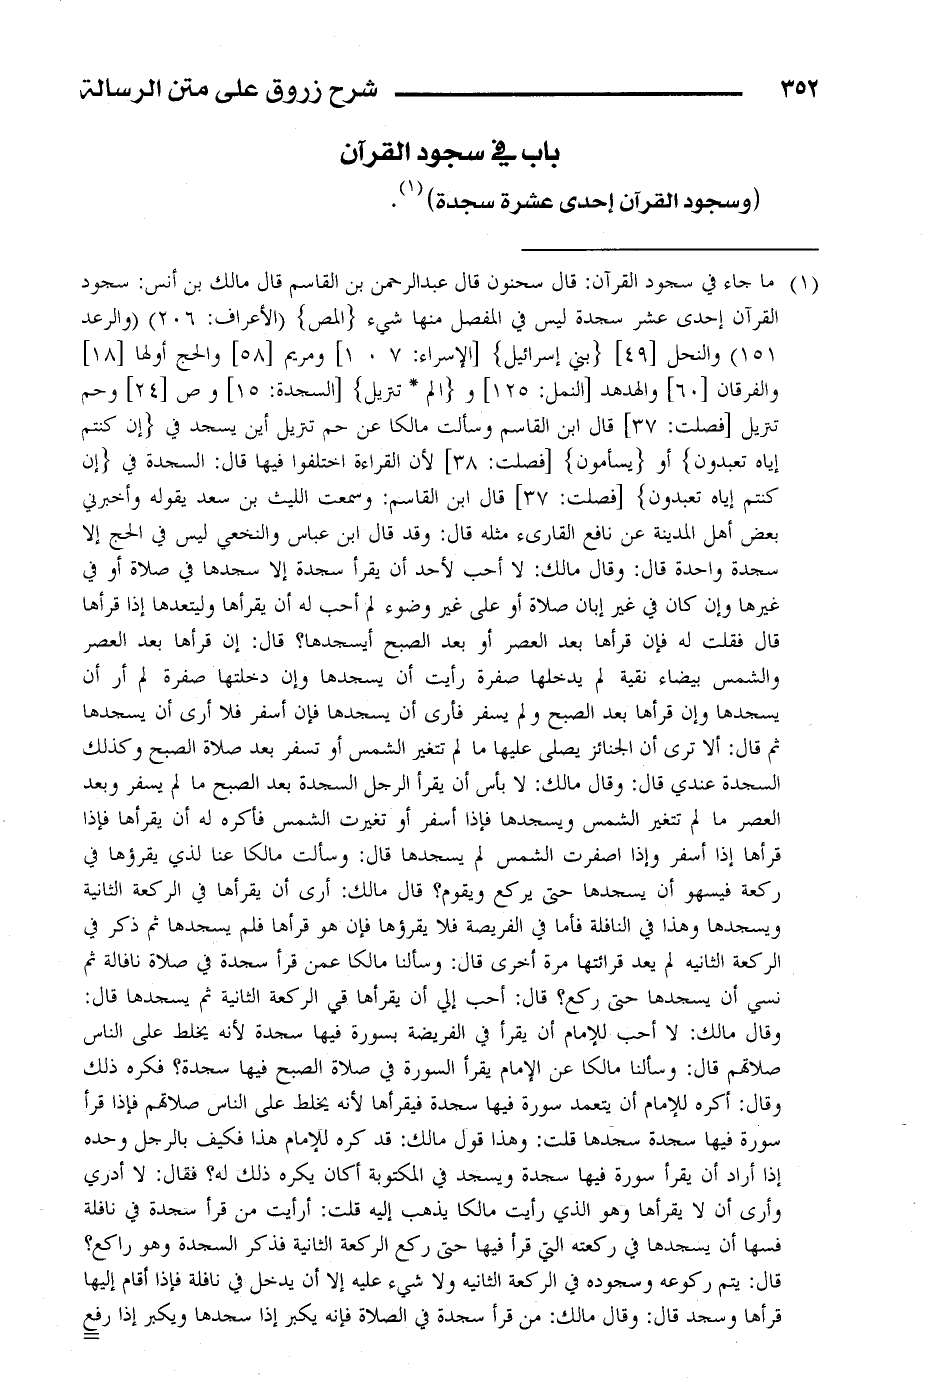 ٣٥٢ شرح زروق على متن الرسالة
باب في سجود القرآن
(وسجود القرآن إحدى عشرة سجدة)(١).
(١) ما جاء في سجود القرآن: قال سحنون قال عبدالرحمن بن القاسم قال مالك بن أنس: سجود
القرآن إحدى عشر سجدة ليس في المفصل منها شيء {المص} (الأعراف: ٢٠٦) (والرعد
١٥١) والنحل [٤٩] {بني إسرائيل} [الإسراء: ١٠٧] ومريم [٥٨] والحج أولها [١٨]
والفرقان [٦٠] والهدهد [النمل: ١٢٥] و {الم * تنزيل} [السجدة: ١٥] و ص [٢٤] وحم
تنزيل [فصلت: ٣٧] قال ابن القاسم وسألت مالكا عن حم تنزيل أين يسجد في {إن كنتم
إياه تعبدون} أو {يسأمون} [فصلت: ٣٨] لأن القراءة اختلفوا فيها قال: السجدة في {إن
كنتم إياه تعبدون} [فصلت: ٣٧] قال ابن القاسم: وسمعت الليث بن سعد يقوله وأخبرني
بعض أهل المدينة عن نافع القارىء مثله قال: وقد قال ابن عباس والنخعي ليس في الحج إلا
سجدة واحدة قال: وقال مالك: لا أحب لأحد أن يقرأ سجدة إلا سجدها في صلاة أو في
غيرها وإن كان في غير إبان صلاة أو على غير وضوء لم أحب له أن يقرأها وليتعدها إذا قرأها
قال فقلت له فإن قرأها بعد العصر أو بعد الصبح أيسجدها؟ قال: إن قرأها بعد العصر
والشمس بيضاء نقية لم يدخلها صفرة رأيت أن يسجدها وإن دخلتها صفرة لم أر أن
يسجدها وإن قرأها بعد الصبح ولم يسفر فأرى أن يسجدها فإن أسفر فلا أرى أن يسجدها
ثم قال: ألا ترى أن الجنائز يصلى عليها ما لم تتغير الشمس أو تسفر بعد صلاة الصبح وكذلك
السجدة عندي قال: وقال مالك: لا بأس أن يقرأ الرجل السجدة بعد الصبح ما لم يسفر وبعد
العصر ما لم تتغير الشمس ويسجدها فإذا أسفر أو تغيرت الشمس فأكره له أن يقرأها فإذا
قرأها إذا أسفر وإذا اصفرت الشمس لم يسجدها قال: وسألت مالكا عنا لذي يقرؤها في
ركعة فيسهو أن يسجدها حتى يركع ويقوم؟ قال مالك: أرى أن يقرأها في الركعة الثانية
ويسجدها وهذا في النافلة فأما في الفريصة فلا يقرؤها فإن هو قرأها فلم يسجدها ثم ذكر في
الركعة الثانيه لم يعد قرائتها مرة أخرى قال: وسألنا مالكا عمن قرأ سجدة في صلاة نافالة ثم
نسي أن يسجدها حتى ركع؟ قال: أحب إلي أن يقرأها قي الركعة الثانية ثم يسجدها قال:
وقال مالك: لا أحب للإمام أن يقرأ في الفريضة بسورة فيها سجدة لأنه يخلط على الناس
صلاتهم قال: وسألنا مالكا عن الإمام يقرأ السورة في صلاة الصبح فيها سجدة؟ فكره ذلك
وقال: أكره للإمام أن يتعمد سورة فيها سجدة فيقرأها لأنه يخلط على الناس صلاتهم فإذا قرأ
سورة فيها سجدة سجدها قلت: وهذا قول مالك: قد كره للإمام هذا فكيف بالرجل وحده
إذا أراد أن يقرأ سورة فيها سجدة ويسجد في المكتوبة أكان يكره ذلك له؟ فقال: لا أدري
وأرى أن لا يقرأها وهو الذي رأيت مالكا يذهب إليه قلت: أرأيت من قرأ سجدة في نافلة
فسها أن يسجدها في ركعته التي قرأ فيها حتى ركع الركعة الثانية فذكر السجدة وهو راكع؟
قال: يتم ركوعه وسجوده في الركعة الثانيه ولا شيء عليه إلا أن يدخل في نافلة فإذا أقام إليها
قرأها وسجد قال: وقال مالك: من قرأ سجدة في الصلاة فإنه يكبر إذا سجدها ويكبر إذا رفع